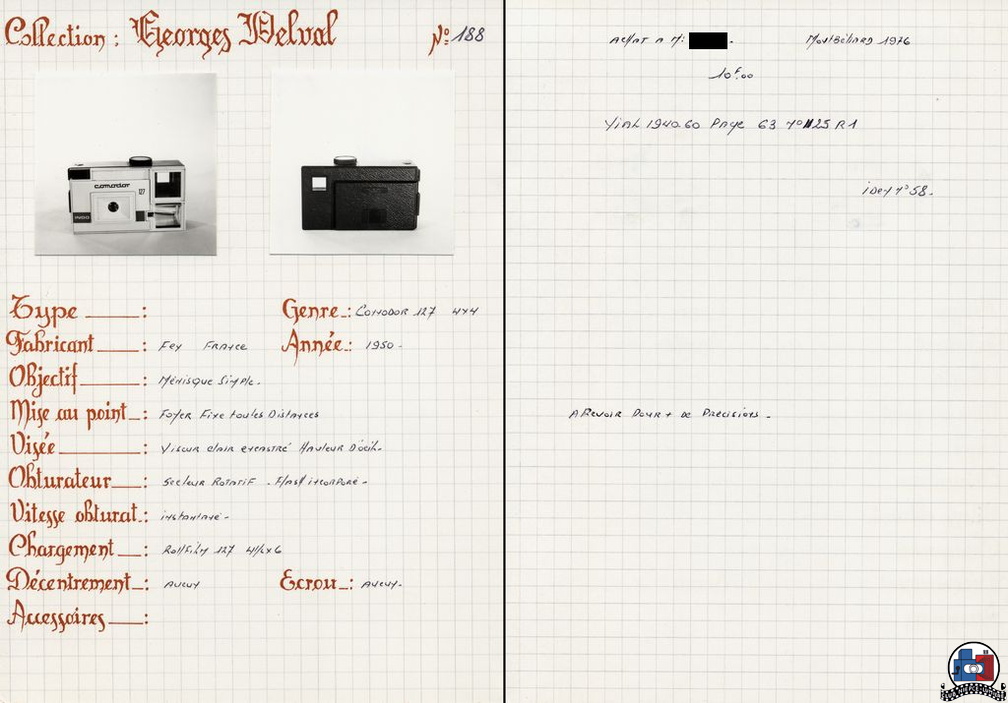 Collection : Georges Delval
N° 188
comodor
127
Type :
Genre : Comodor 127 4x4
Fabricant : Fex France
Année : 1950 -
Objectif : Ménisque Simple.
Mise au point : Foyer Fixe toutes Distances
Visée : Viseur clair excentré Hauteur D'œil.
Obturateur : Secteur Rotatif . Flash incorporé -
Vitesse obturat. : instantané -
Chargement : Rollfilm 127 4x6
Décentrement : Aucun
Ecrou : Aucun.
Accessoires :
Achat a Mr
Montbéliard 1976
10F.00
Vial 1940.60 Page 63 n° 1125 R1
idem n° 58.
A Revoir Pour + de Precisions -